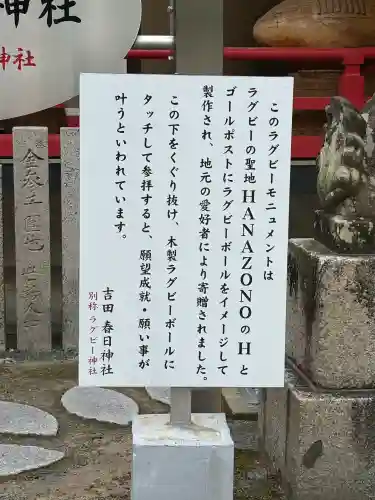 神社
神社
このラグビーモニュメントは
ラグビーの聖地HANAZONOのHと
ゴールポストにラグビーボールをイメージして
製作され、地元の愛好者により寄贈されました。
この下をくぐり抜け、木製ラグビーボールに
タッチして参拝すると、願望成就・願い事が
叶うといわれています。
吉田 春日神社
別称 ラグビー神社